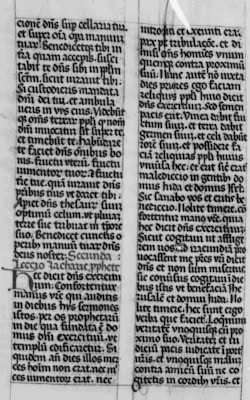 cionē dn̄s sup cellaria tua
et super oīa opa manuum
tuaꝝ. Benedicetqꝫ tibi in
terra quam acceperis. Susci
tabit te dn̄s sibi in pplm
scm̄. sicut iurauit tibi.
Si custodieris mandata
dn̄i dei tui. et ambula
ueris in vijs eius. Videbūt
qꝫ om̄s terraꝝ ppli qd nomē
dn̄i inuocatū sit super te
et timebūt te. habūdare
te faciet dn̄s omībus bo
nis. fructu vteri. fructu
iumentoꝝ tuoꝝ. fructu
terre tue. quā iurauit dn̄s
patribus tuis vt daret tibi.
Apiet dn̄s thesauꝝ suū
optimū celum. vt pluuiā
terre tue tribuat in tpore
suo. Benedicet cunctis o
peribꝫ manuū tuaꝝ dn̄s
deus noster. Secunda
Leccio Zacharie pphete
Hec dicit dn̄s exercitu
um. Confortentur
manus vr̄e qui auditis
in diebus hijs sermones
istos. per os prophetarū
in die qua fūdata ē do
mus dn̄i exercituū. vt
templū edificaretur. Si
quidem an̄ dies illos mer
ces hoīm non erat. nec mer
ces iumentoꝝ erat. nec
introeūti et exeunti erat
pax pre tribulacōe. et di
misi om̄s homīes vnum
quemqꝫ contra proximū
suū. Nunc autē nō iuxta
dies priores ego faciam
reliquijs ppli huius dicit
dn̄s exercituū. Sed semen
pacis erit. Vinea dabit fru
ctum suū. et terra dabit
germen suū. et celi dabūt
rorē suū. et possidere fa
ciā reliquias ppli huius
vniuersa hec. et erit sicut erat
maledictio in gentibꝫ do
mus iuda et domus isrl̄.
Sic saluabo vos et eritis be
nedictio. Nolite timere. cō
fortentur manus vr̄e. Quia
hec dicit dn̄s exercituum.
Sicut cogitaui vt afflige
rem vos. cū ad iracūdiā pro
uocassent me pr̄es vr̄i dicit
dn̄s et non sum misertus.
sic conuersus cogitaui in di
ebus istis vt benefaciā Ihe
rusalē et domui iuda. No
lite timere. hec sunt ergo
verba que facietis. Loquimini
veritatē vnusquisqꝫ cū pro
ximo suo. Veritatē et iu
diciū pacis iudicate in por
tis vr̄is. et vnusquisqꝫ malum
contra amicū suū ne co
gitetis in cordibꝫ vr̄is. et